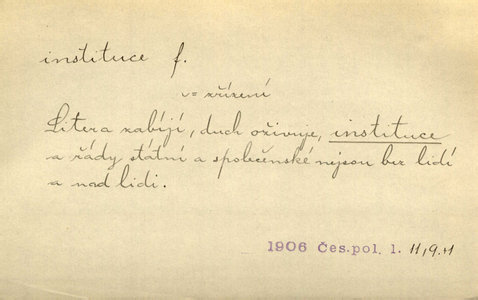 instituce f.
v = zřízení
Litera zabíjí, duch oživuje, instituce
a řády státní a společenské nejsou bez lidí
a nad lidi.
1906 Čes. pol. 1. 11, 9. 11